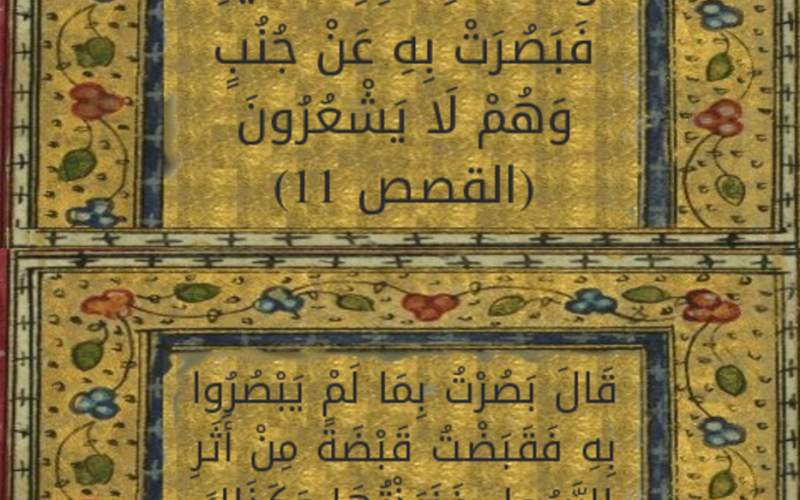 فَبَصُرَتْ بِهِ عَنْ جُنُبٍ
وَهُمْ لَا يَشْعُرُونَ
(القصص 11)
قَالَ بَصُرْتُ بِمَا لَمْ يَبْصُرُوا
بِهِ فَقَبَضْتُ قَبْضَةً مِنْ أَثَرِ